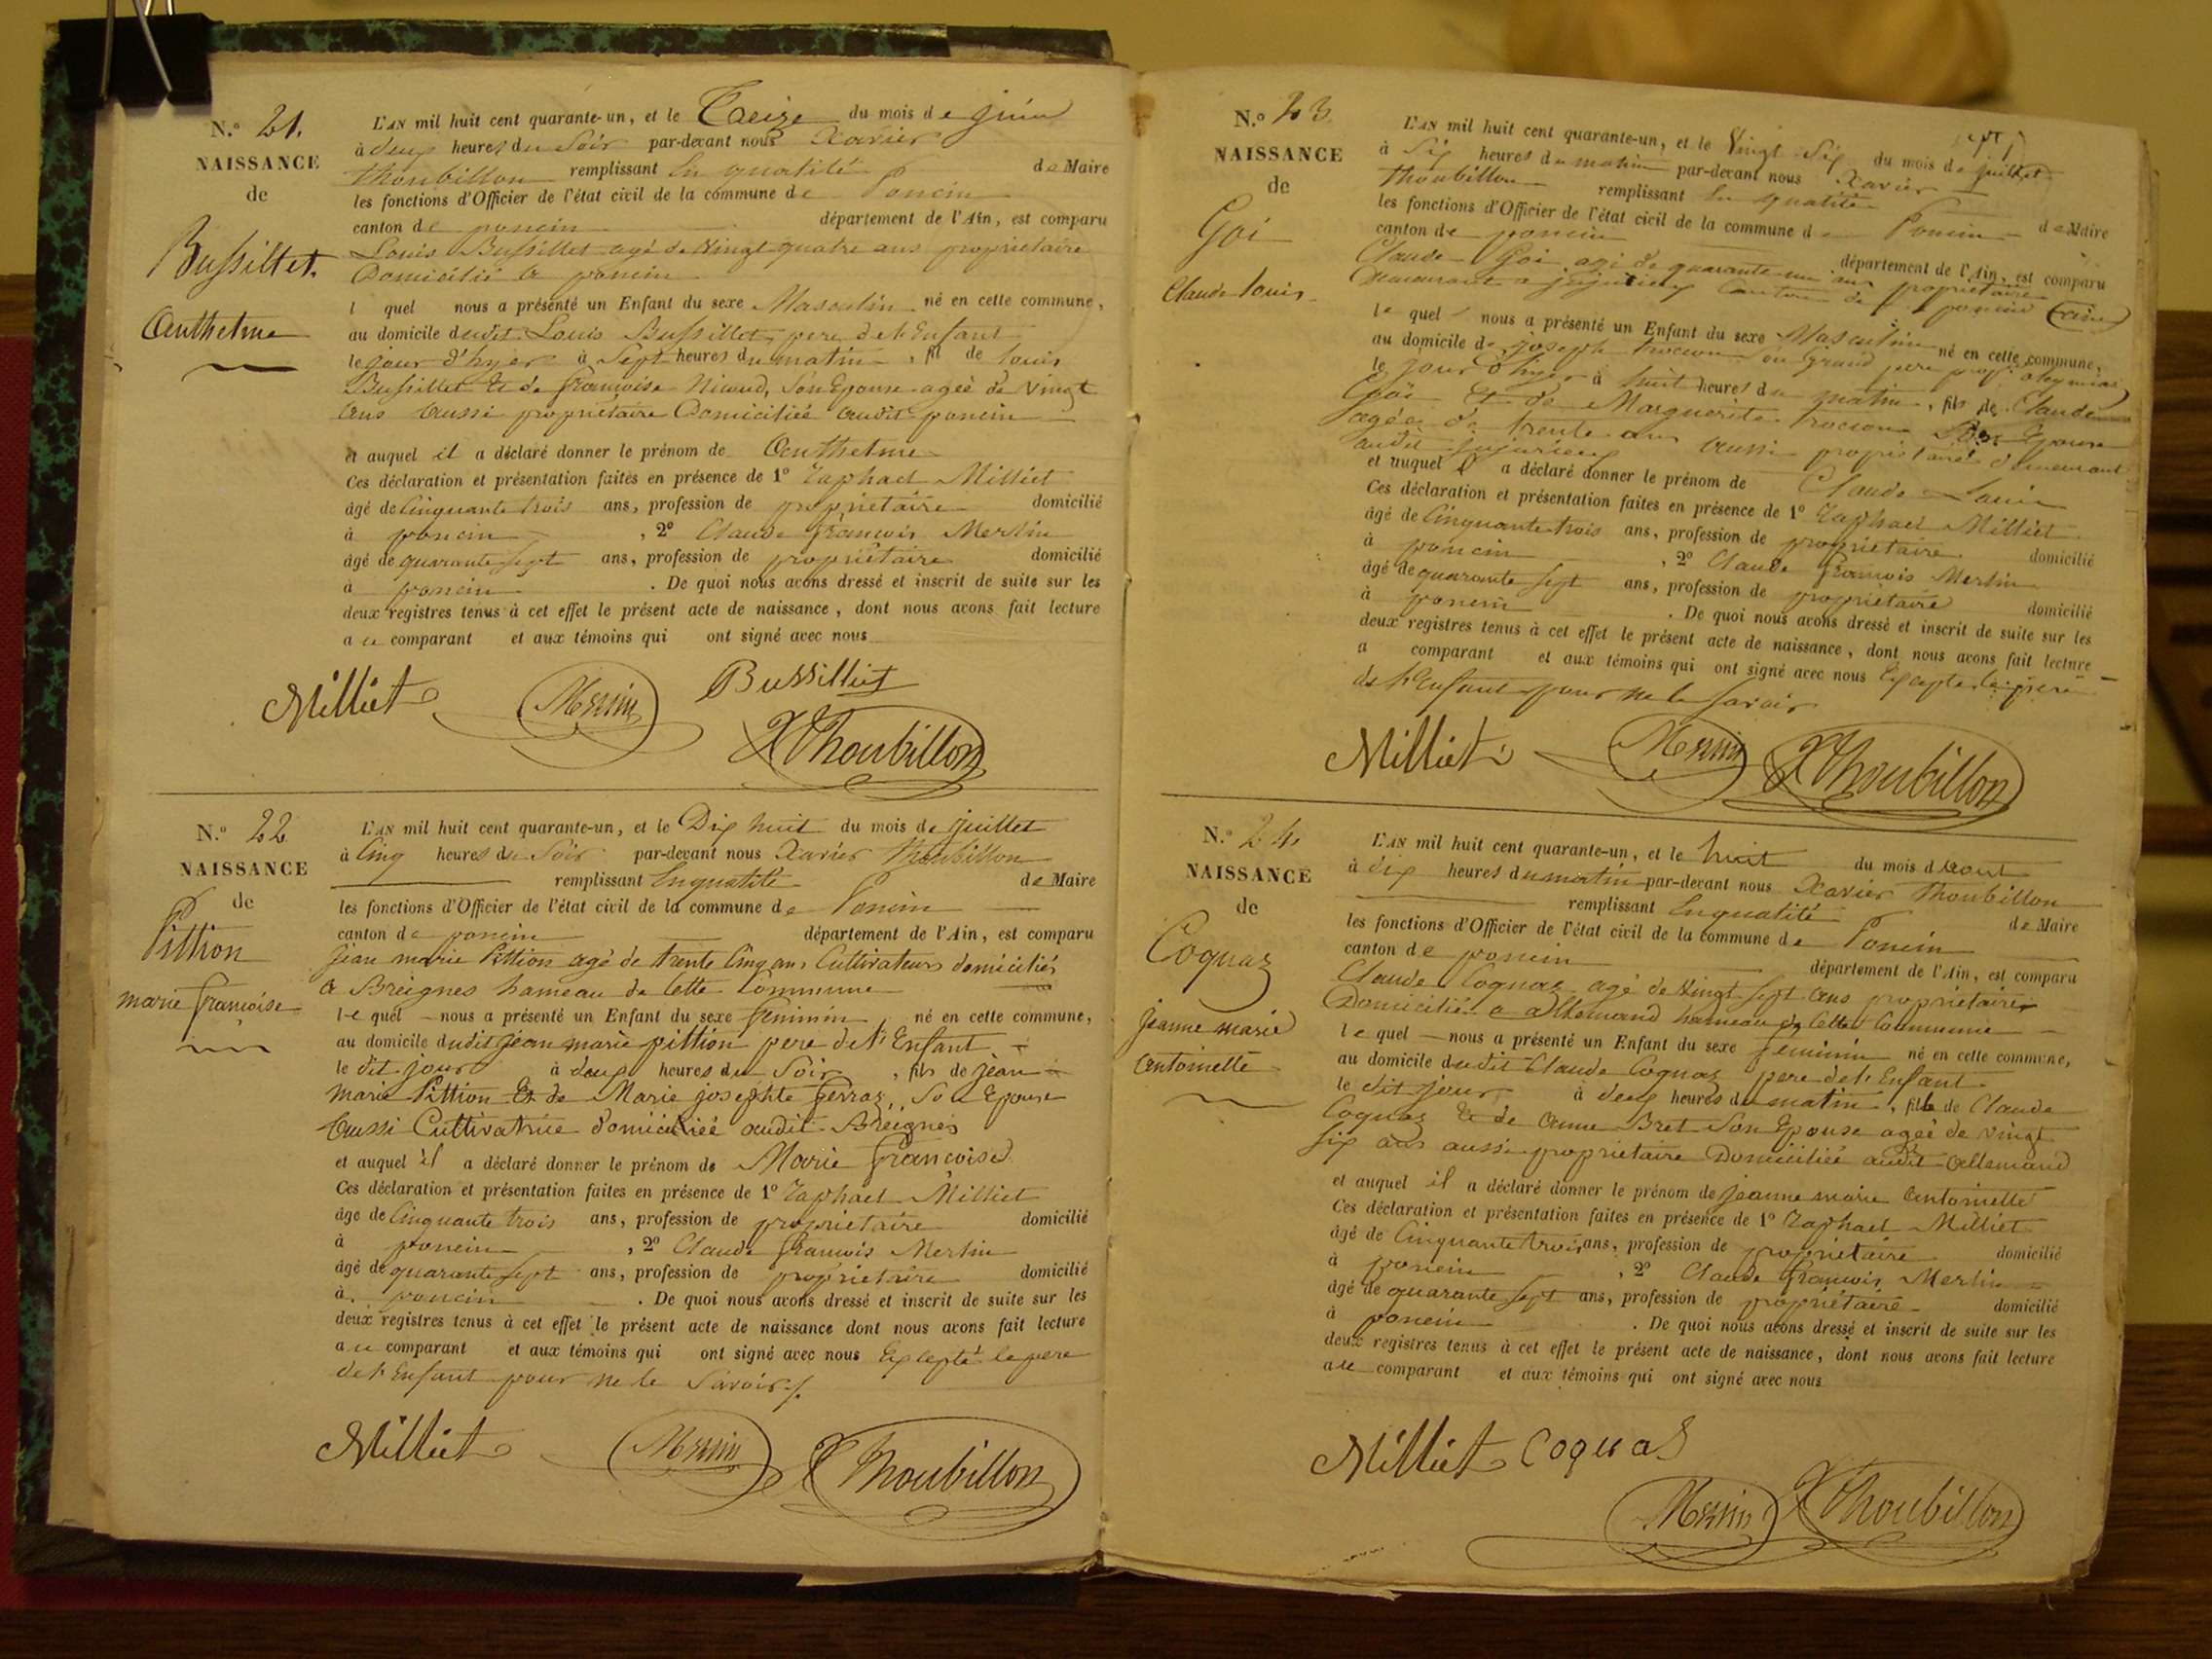 N.° 21.
NAISSANCE
de
Bussillet.
Anthelme
L'AN mil huit cent quarante-un, et le Treize du mois de juin
à deux heures du Soir par-devant nous Xavier
Thoubillon remplissant En qualité de Maire
les fonctions d'Officier de l'état civil de la commune de Poncin
canton de poncin département de l'Ain, est comparu
Louis Bussillet agé de Vingt quatre ans propriétaire
Domicilié a poncin
l quel nous a présenté un Enfant du sexe Masculin né en cette commune,
au domicile dudit Louis Bussillet pere de l'Enfant
le jour d'hyer à Sept heures du matin, fil de louis
Bussillet Et de françoise Nicoud, Son Epouse agée de Vingt
ans aussi propriétaire Domiciliée audit poncin
et auquel il a déclaré donner le prénom de Anthelme
Ces déclaration et présentation faites en présence de 1° Raphael Milliet
âgé de Cinquante trois ans, profession de propriétaire domicilié
à poncin, 2° Claude françois Merlin
âgé de quarante sept ans, profession de propriétaire domicilié
à poncin. De quoi nous avons dressé et inscrit de suite sur les
deux registres tenus à cet effet le présent acte de naissance, dont nous avons fait lecture
au comparant et aux témoins qui ont signé avec nous
Milliet Merlin Bussilliet
X Thoubillon
N.° 22
NAISSANCE
de
Pittion
marie françoise
L'AN mil huit cent quarante-un, et le Dix huit du mois de juillet
à Cinq heures du Soir par-devant nous Xavier Thoubillon
remplissant En qualité de Maire
les fonctions d'Officier de l'état civil de la commune de Poncin
canton de poncin département de l'Ain, est comparu
jean marie Pittion agé de trente Cinq ans Cultivateur domicilié
a Breignes hameau de Cette Commune
le quel nous a présenté un Enfant du sexe feminin né en cette commune,
au domicile dudit jean marie pittion pere de l'Enfant
le dit jour à deux heures du Soir, fils de jean
marie Pittion Et de Marie josephte ferraz, Son Epouse
aussi Cultivatrice domiciliée audit Breignes
et auquel il a déclaré donner le prénom de Marie françoise
Ces déclaration et présentation faites en présence de 1° Raphael Milliet
âge de Cinquante trois ans, profession de propriétaire domicilié
à poncin, 2° Claude françois Merlin
âgé de quarante sept ans, profession de propriétaire domicilié
à poncin. De quoi nous avons dressé et inscrit de suite sur les
deux registres tenus à cet effet le présent acte de naissance dont nous avons fait lecture
au comparant et aux témoins qui ont signé avec nous Excepté le pere
de l'Enfant pour ne le Savoir./.
Milliet Merlin X Thoubillon
N.° 23
NAISSANCE
de
Goi
Claude louis
L'AN mil huit cent quarante-un, et le Vingt Six du mois de juillet
à Six heures du matin par-devant nous Xavier
Thoubillon remplissant En qualité de Maire
les fonctions d'Officier de l'état civil de la commune de Poncin
canton de poncin département de l'Ain, est comparu
Claude Goi agé de quarante un ans propriétaire
demeurant a jujurieux Canton de poncin (ain)
le quel nous a présenté un Enfant du sexe Masculin né en cette commune,
au domicile de joseph trocion Son grand pere
le jour d'hyer à huit heures du matin, fils de Claude
Goi Et de Marguerite trocion Son Epouse
agée de trente ans aussi propriétaire demeurant
audit jujurieux
et auquel il a déclaré donner le prénom de Claude Louis
Ces déclaration et présentation faites en présence de 1° Raphael Milliet
âgé de Cinquante trois ans, profession de propriétaire domicilié
à poncin, 2° Claude françois Merlin
âgé de quarante sept ans, profession de propriétaire domicilié
à poncin. De quoi nous avons dressé et inscrit de suite sur les
deux registres tenus à cet effet le présent acte de naissance, dont nous avons fait lecture
a comparant et aux témoins qui ont signé avec nous Excepté le pere
de l'Enfant pour ne le Savoir
Milliet Merlin X Thoubillon
N.° 24.
NAISSANCE
de
Coquaz
jeanne marie
antoinette
L'AN mil huit cent quarante-un, et le huit du mois d'aout
à dix heures du matin par-devant nous Xavier Thoubillon
remplissant En qualité de Maire
les fonctions d'Officier de l'état civil de la commune de Poncin
canton de poncin département de l'Ain, est comparu
Claude Coquaz agé de Vingt sept ans propriétaire
Domicilié a allemand hameau de Cette Commune
le quel nous a présenté un Enfant du sexe feminin né en cette commune,
au domicile dudit Claude Coquaz pere de l'Enfant
le dit jour à deux heures du matin, fille de Claude
Coquaz Et de anne Bret Son Epouse agée de vingt
six ans aussi propriétaire Domiciliée audit allemand
et auquel il a déclaré donner le prénom de jeanne marie antoinette
Ces déclaration et présentation faites en présence de 1° Raphael Milliet
âgé de Cinquante trois ans, profession de propriétaire domicilié
à poncin, 2° Claude françois Merlin
âgé de quarante sept ans, profession de propriétaire domicilié
à poncin. De quoi nous avons dressé et inscrit de suite sur les
deux registres tenus à cet effet le présent acte de naissance, dont nous avons fait lecture
au comparant et aux témoins qui ont signé avec nous
Milliet Coquas
Merlin X Thoubillon